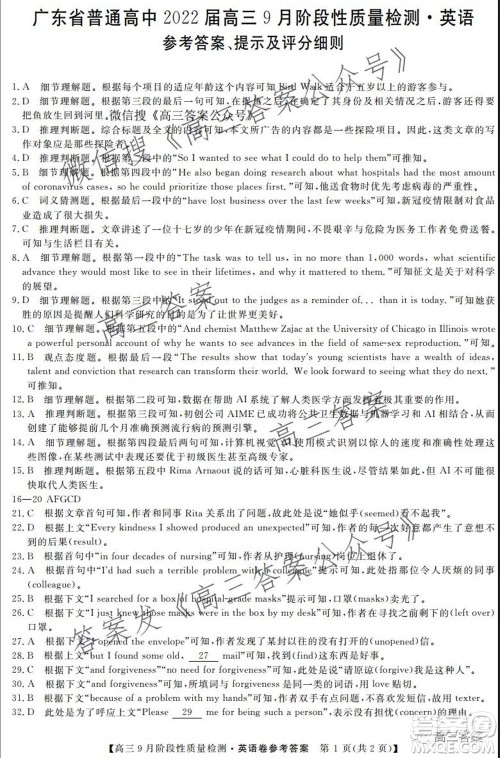 广东省普通高中 2022 届高三 9 月阶段性质量检测·英语
参考答案、提示及评分细则
1. A 细节理解题。根据每个项目的适应年龄这个内容可知 Bird Walk 适合于五岁以上的游客参与。
2. D 细节理解题。根据第三段的最后一句可知，在
把鱼放回到河里。
3. D 推理判断题。综合标题及全文的内容可知，本文所广告的内容都是一些探险项目。因此，这类文章的写
作对象应是那些探险者。
4. D 推理判断题。根据第一段中的“So I wanted to see what I could do to help them”可推知。
5. B 细节理解题。根据第四段中的“He also began doing research about what hospitals had the most amount
of coronavirus cases, so he could prioritize those places first.”可知，他送食物时优先考虑病毒的严重性。
6. C 词义猜测题。根据最后一段中的“have lost business over the last few weeks”可知，新冠疫情对一些企业
造成了很大的损失。
7. C 推理判断题。文章讲述了一位十七岁的少年在新冠疫情期间，不惧自身危险为医务工作者服务的故事。
可知与生活栏目有关。
8. A 细节理解题。根据第一段中的“The task was to tell us, in no more than 1,000 words, what scientific
advance they would most like to see in their lifetimes, and why it mattered to them.”可知征文是关于对科学
的展望。
9. D 细节理解题。根据第三段中的“It stood out to the judges as a reminder of... than it is today.”可知她获
胜的原因是提醒人们科学研究的目的是为了让世界更美好。
10. C 细节理解题。根据第四段中的“And chemist Matthew Zajac at the University of Chicago in Illinois wrote
a powerful personal account of why he wants to see advances in the field of same-sex reproduction.”可知。
11. B 观点态度题。根据最后一段中的“The results show that today’s young scientists have a wealth of ideas,
talent and conviction that can transform their world and we look forward to seeing what they do next.”可知。
12. B 细节理解题。根据第二段可知，数据帮助 AI 系统了解人类医学方面发挥着极其重要的作用。
13. A 推理判断题。根据第三段可知，初创公司 AIME 已成功将公共卫生数据与机器学习和 AI 相结合，从而
创建了能够提前几个月准确预测流行病的预测引擎。
14. A 细节理解题。根据第四段可知，
AI 使用模式识别以惊人的速度和准确性处理这些图像。
在某些测试中表现优于初级医生甚至高级专家。
15. B 推理判断题。根据第五段中 Rima Arnaout 说的话可知，心脏科医生说，尽管结果如此，但 AI 不可能很
快取代人类医生。
16—20 AFGCD
21. C 根据文章首句可知，作者和同事 Rita 关系出了问题，故此处说“她似乎(seemed)看不起我”。
22. D 根据上文“Every kindness I showed produced an unexpected”可知，作者的每一次好意都得不
到的后果(result)。
23. B 根据首句中“in four decades of nursing”可知，作者从护理(nursing)岗位上退休了。
24. C 根据首句中的“I'd had such a terrible problem with”可知，此处指的是那位令人厌烦的同事
(colleague)。
25. D 根据下文“I searched for a box of hospital-grade masks”提示可知，口罩(masks)卖光了。
26. C 根据下文“I just knew those masks were in the box by my desk”可知，作者在寻找之前剩余的(left over)
口罩。
27. A 根据下文“I opened the envelope”可知，作者找到了一封旧(old)邮件。
28. B 根据上文“but I found some old 27 mail”可知，找到(find)这封东西是好事。
29. A 根据下文“and forgiveness”“no need for forgiveness”可知，此处是指“请原谅(forgive)我”。
30. C 根据上文“forgiveness”可知，此处是指“没有必要原谅(forgiveness)”。
31. A 根据下文可知，作者那时有太多事要做，不喜欢发短信，故用 texter。
32. D 根据上文“Please 29 me for being such a
【高三 9 月阶段性质量检测·英语卷参考答案 第 1 页(共 2 页)】
微信搜《高三答案公众号》
微信搜《高三答案公众号》
高三答案
高三答案
答案发《高三答案公众号》
高三答案